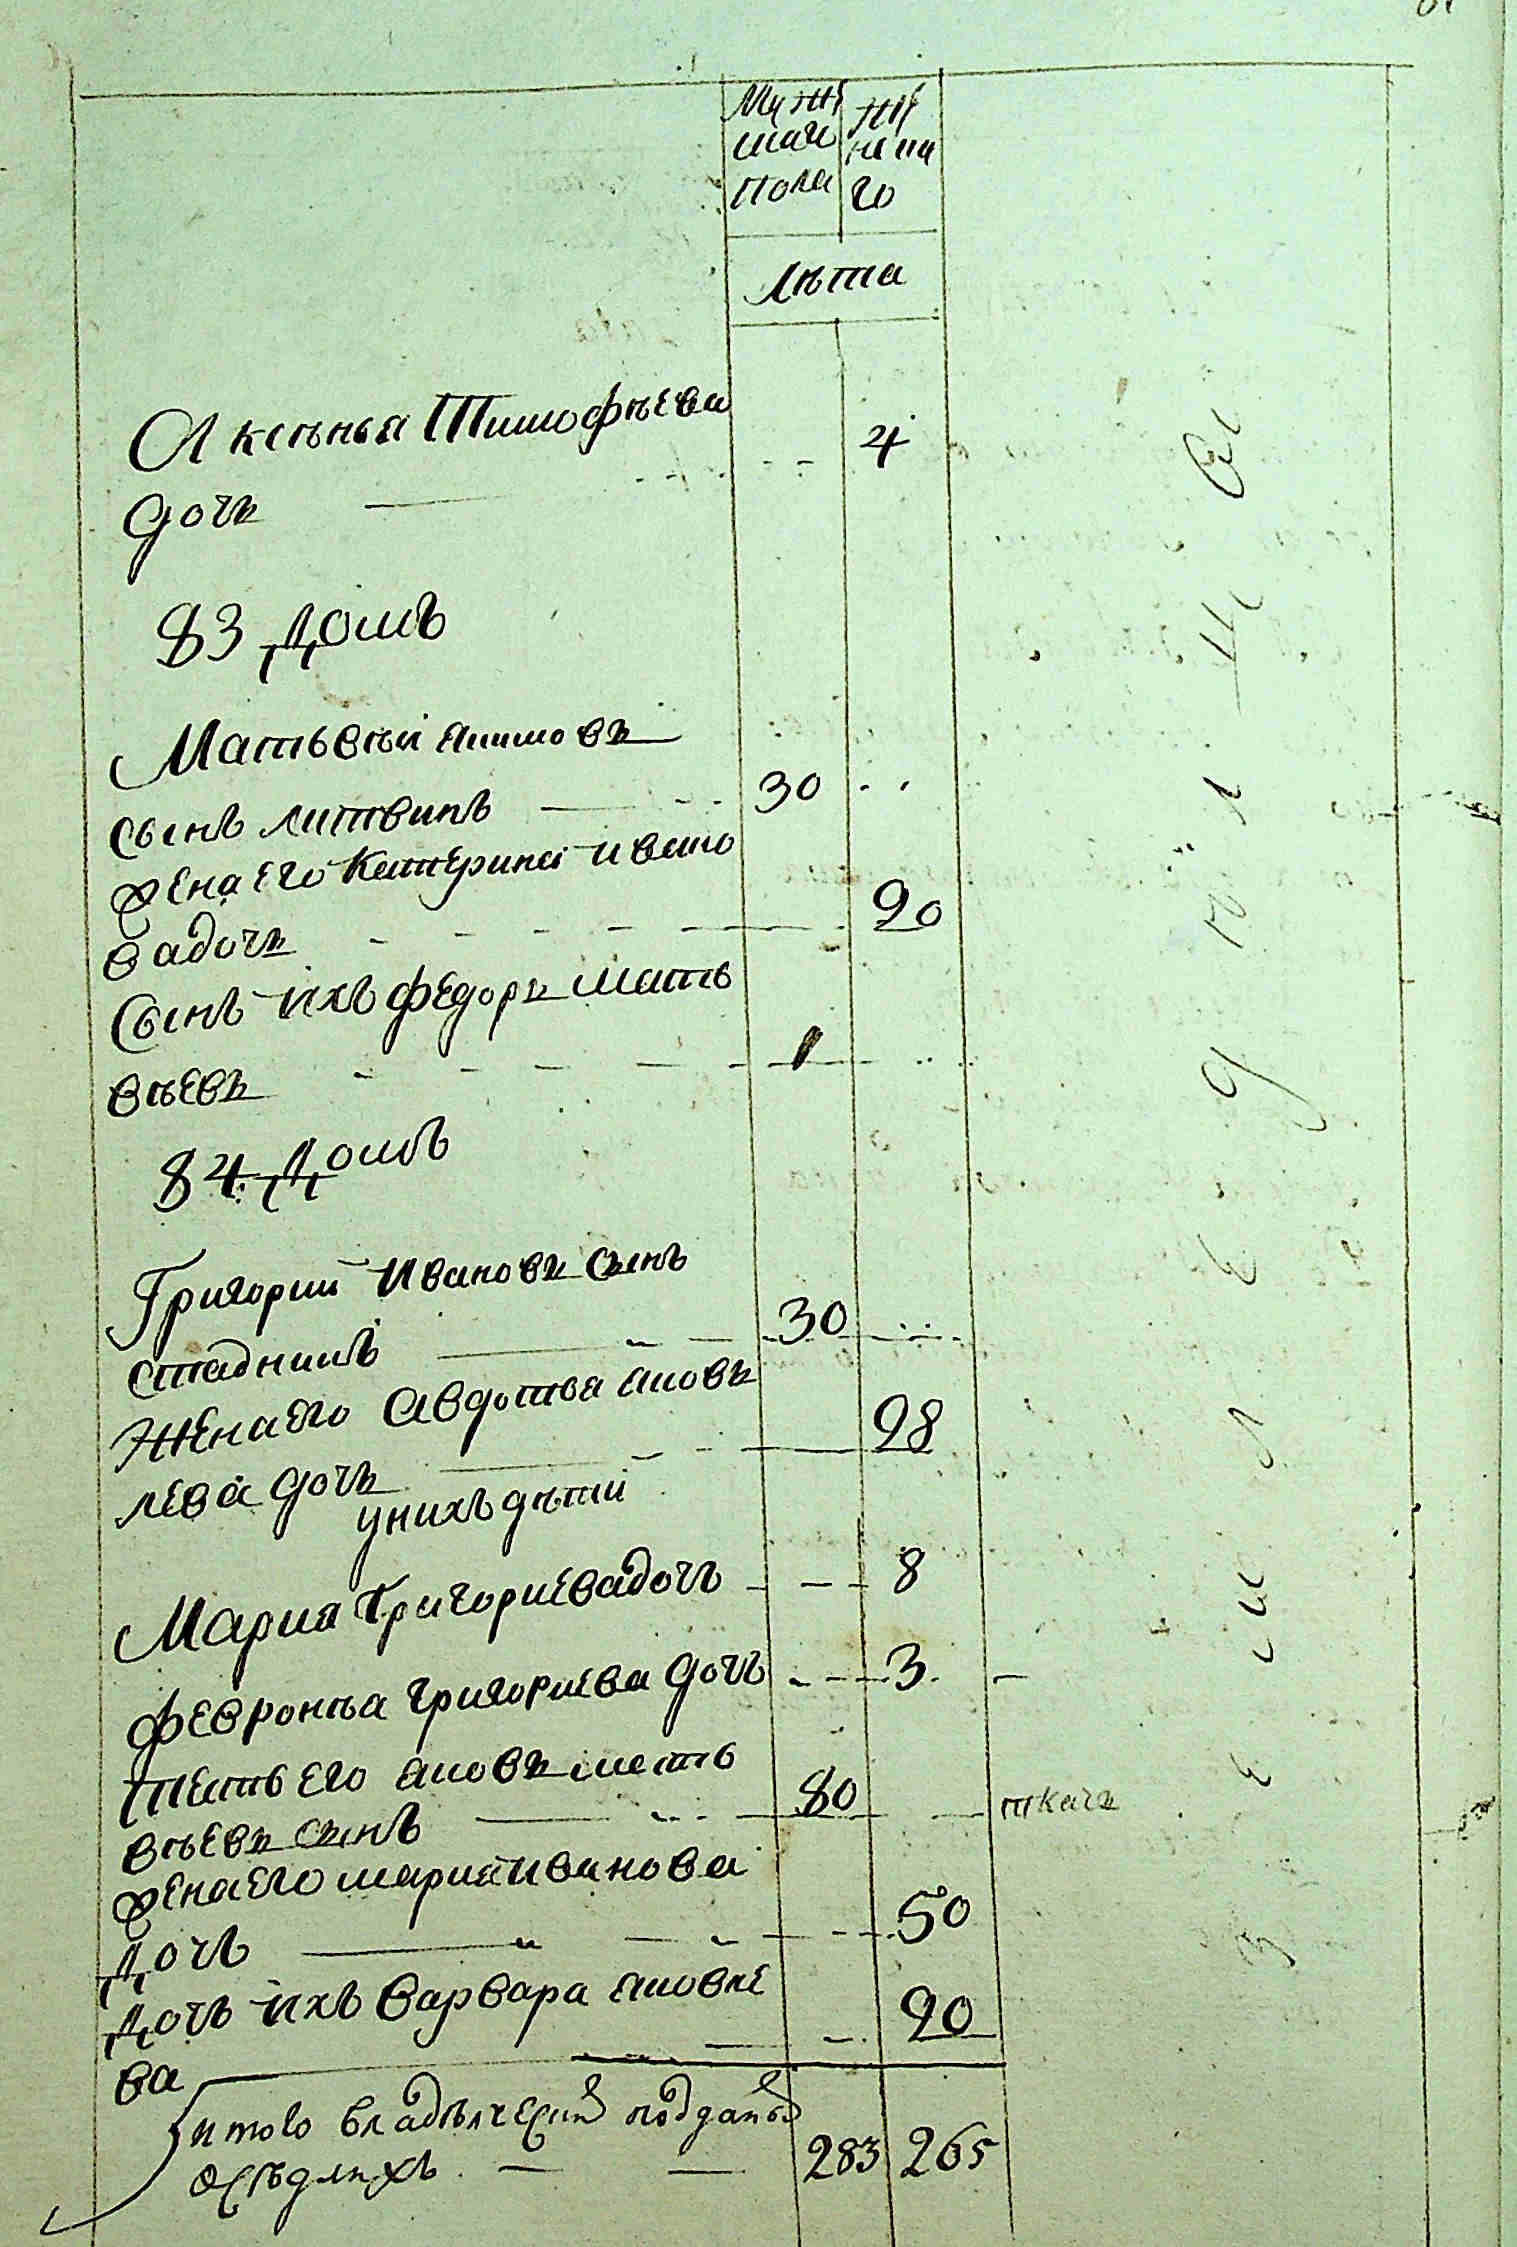 Мужs
жs
скаго
женска
пола
го
Лѣта
Аксѣнья Тимофѣева
дочъ 4
83 домъ
Матьвѣй акимовъ
сынъ литвинъ 30
жена его Катерина ивано
ва дочъ 20
Сынъ ихъ федоръ мать
вѣевъ 1
84 домъ
Григорий Ивановъ сынъ
стадникъ 30
Жена его Авдотья яков
лева дочъ 28
у нихъ дѣти
Мария Григориева дочъ 8
Февронѣя григориева дочъ 3
Тесть его яковъ мать
вѣевъ сынъ 80 ткачъ
жена его мария иванова
дочъ 50
дочъ ихъ варвара яковле
ва 20
итого владѣлчески подданы
осѣдлихъ 283 265
земледѣлцы